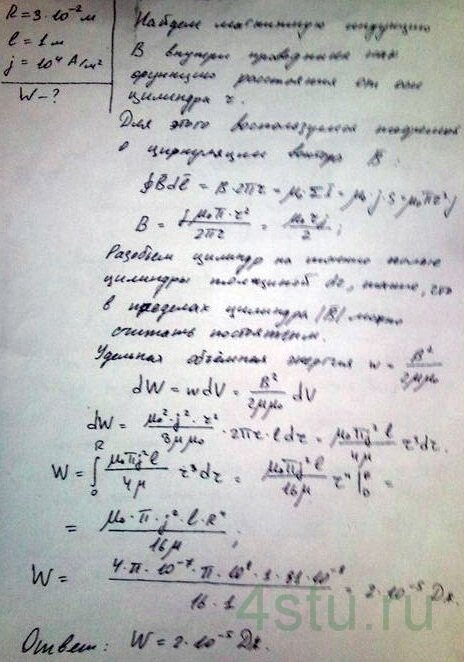 R = 3·10⁻² м
l = 1 м
j = 10⁴ А/м²
W - ?
Найдем магнитную индукцию
B внутри проводника как
функцию расстояния от оси
цилиндра r.
Для этого воспользуемся теоремой
о циркуляции вектора B⃗:
∮Bdl = B·2πr = μ₀·ΣI = μ₀·j·S = μ₀πr²j
B = jμ₀π·r²/2πr = μ₀rj/2;
Разобьем цилиндр на тонкие полые
цилиндры толщиной dr, такие, что
в пределах цилиндра |B⃗| можно
считать постоянным.
Удельная объёмная энергия w = B²/2μμ₀
dW = wdV = B²/2μμ₀ dV
dW = μ₀²·j²·r²/8μμ₀ · 2πr·l dr = μ₀πj²l/4μ r³dr.
W = ∫₀ᴿ μ₀πj²l/4μ r³dr = μ₀πj²l/16μ r⁴|₀ᴿ =
= μ₀·π·j²·l·R⁴/16μ;
W = 4·π·10⁻⁷·π·10⁸·1·81·10⁻⁸/16·1 = 2·10⁻⁵ Дж.
4stu.ru
Ответ: W = 2·10⁻⁵ Дж.